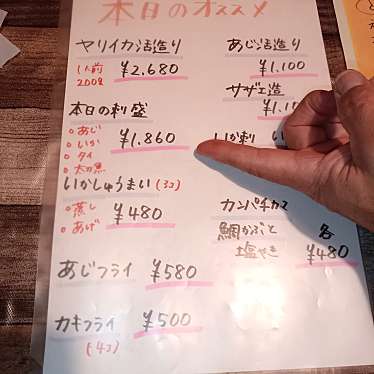 本日のオススメ
ヤリイカ活造り
1人前
200g
¥2,680
本日の刺盛
○あじ
○いか
○タイ
○太刀魚
¥1,860
いかしゅうまい(3コ)
○蒸し
○あげ
¥480
あじフライ ¥580
カキフライ ¥500
(4コ)
あじ活造り
¥1,100
サザエ造
いか刺
カンパチカマ
鯛かぶと
塩やき
各
¥480